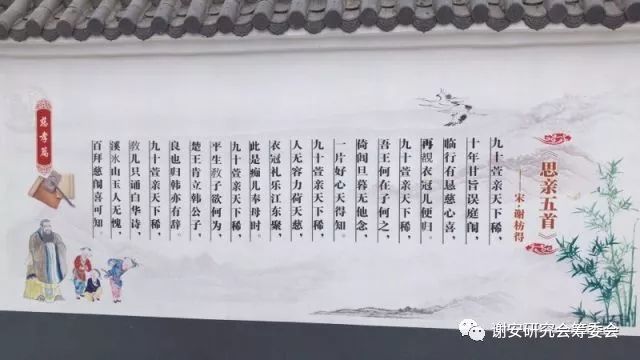 《思亲五首》
——宋·谢枋得
九十萱亲天下稀，
十年甘旨误庭闱
临行有恳慈心喜，
再衣冠儿便归。
九十萱亲天下稀，
吾王何在子何之，
倚闾旦暮无他念，
一片好心天得知。
九十萱亲天下稀，
人无容力荷天慈，
衣冠礼乐江东聚
此是痴儿奉母时。
九十萱亲天下稀，
平生教子欲何为，
楚王肯立韩公子，
良也归韩亦有辞。
九十萱亲天下稀，
教儿只诵白华诗，
溪冰山玉人无愧，
百拜慈闱喜可知。
慈孝篇
谢安研究会筹委会